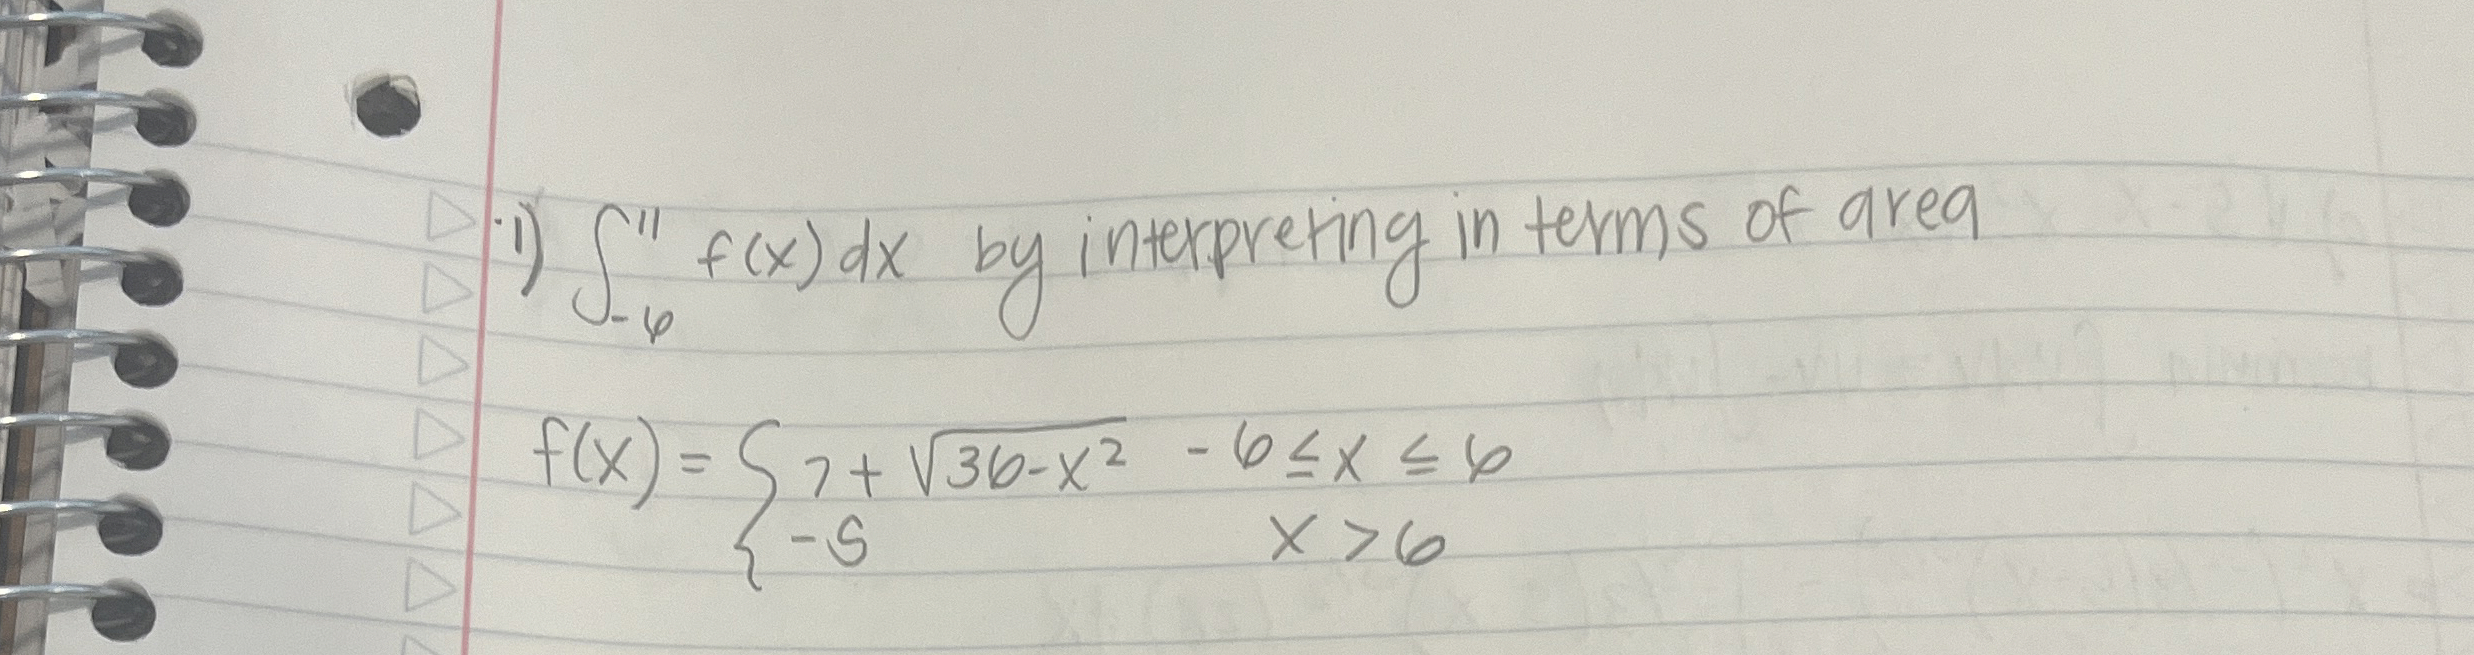 1) ∫₋₆¹¹ f(x) dx by interpreting in terms of area
f(x) = { 7 + √36-x² -6 ≤ x ≤ 6
-5 x > 6